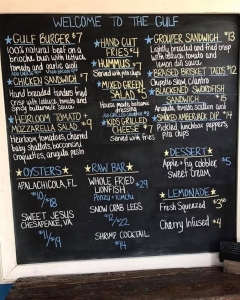 WELCOME TO THE GULF
GULF BURGER $7
100% natural beef on a
brioche bun with lettuce
tomato and garlic aioli
CHICKEN SANDWICH $7
Hand breaded tenders fried
crisp with lettuce, tomato and
spicy buttermilk sauce
HEIRLOOM TOMATO +
MOZZARELLA SALAD $9
Heirloom tomatoes, charred
baby shallots, bocconcini,
croquettes, arugula pesto
HAND CUT
FRIES $4
HUMMUS $7
Served with pita chips
MIXED GREEN
SALAD $5
House made balsamic
dressing
KIDS GRILLED
CHEESE $7
Served with fries
GROUPER SANDWICH $13
Lightly breaded and fried crisp
with lettuce, tomato and
lemon dill sauce
BRAISED BRISKET TACOS $12
Chipotle slaw, cilantro
BLACKENED SWORDFISH
SANDWICH $15
Arugula, tomato, scallion and
SMOKED AMBERJACK DIP $14
Pickled lunchbox peppers,
pita chips
OYSTERS
APALACHICOLA, FL
$10/$18
SWEET JESUS
CHESAPEAKE, VA
$11/$19
RAW BAR
WHOLE FRIED
LIONFISH $29
Ponzu + Kimchi
SNOW CRAB LEGS
$12/$22
SHRIMP COCKTAIL
$14
DESSERT
Apple + fig cobbler $5
Sweet Cream
LEMONADE
Fresh Squeezed $3.50
Cherry Infused $4